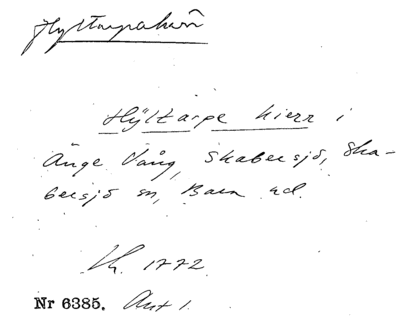 Hyltarpakärr
Hÿltarpe kierr i
Änge Vång, Skabersjö, Ska-
bersjö sn, Bara hd.
Lh. 1772.
Nr 6385. Akt 1.